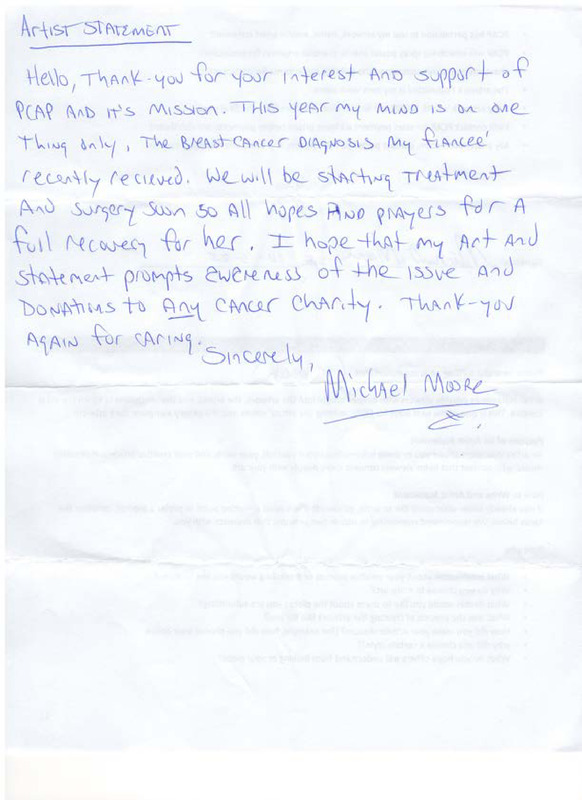 Artist Statement
Hello, Thank-you for your interest and support of
PCAP and it's mission. This year my mind is on one
thing only, The Breast Cancer Diagnosis my fiancee'
recently recieved. We will be starting treatment
and surgery soon so all hopes and prayers for a
full recovery for her. I hope that my art and
statement prompts awereness of the issue and
donations to any cancer charity. Thank-you
again for caring.
Sincerely,
Michael Moore